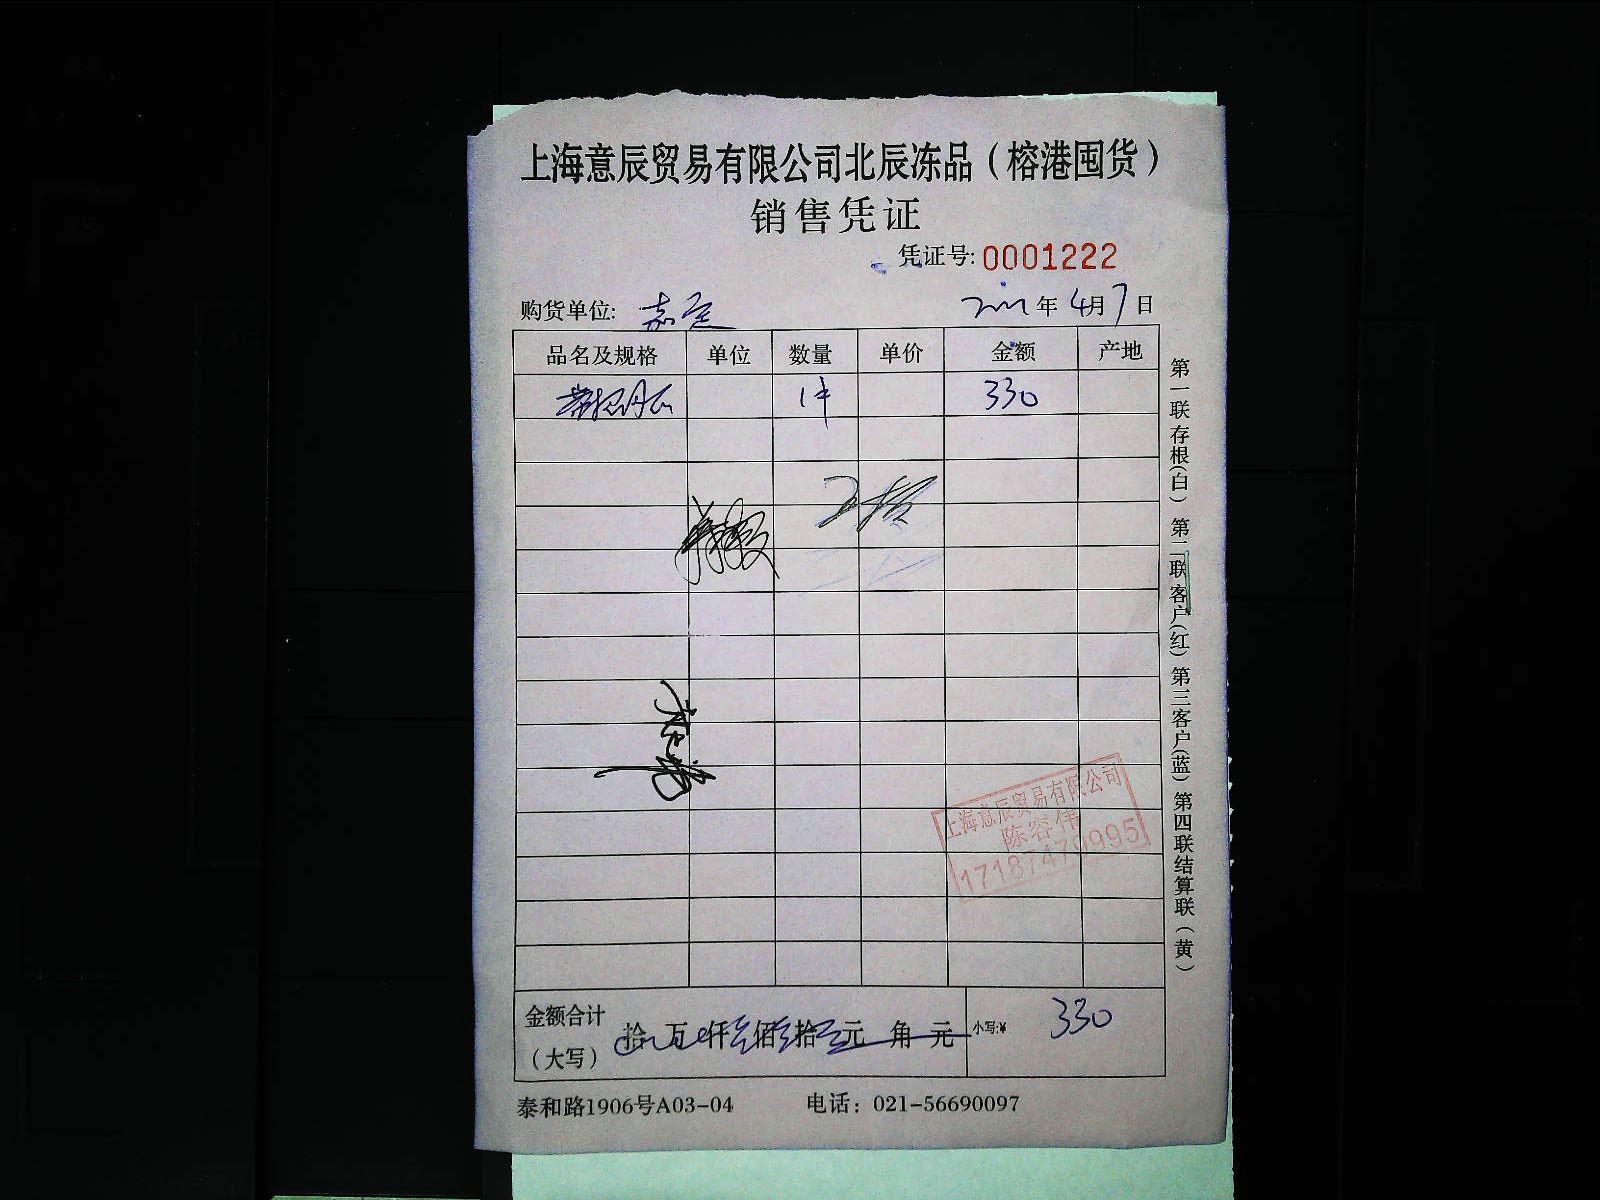 上海意辰贸易有限公司北辰冻品（榕港囤货）
销售凭证
凭证号:0001222
购货单位: 嘉 年4月7日
品名及规格 单位 数量 单价 金额 产地
1件 330
上海意辰贸易有限公司
陈容伟
17187479995
金额合计（大写） 拾 万 仟 佰 拾 元 角 元 小写:¥ 330
泰和路1906号A03-04 电话：021-56690097
第一联存根(白) 第二联客户(红) 第三客户(蓝) 第四联结算联(黄)